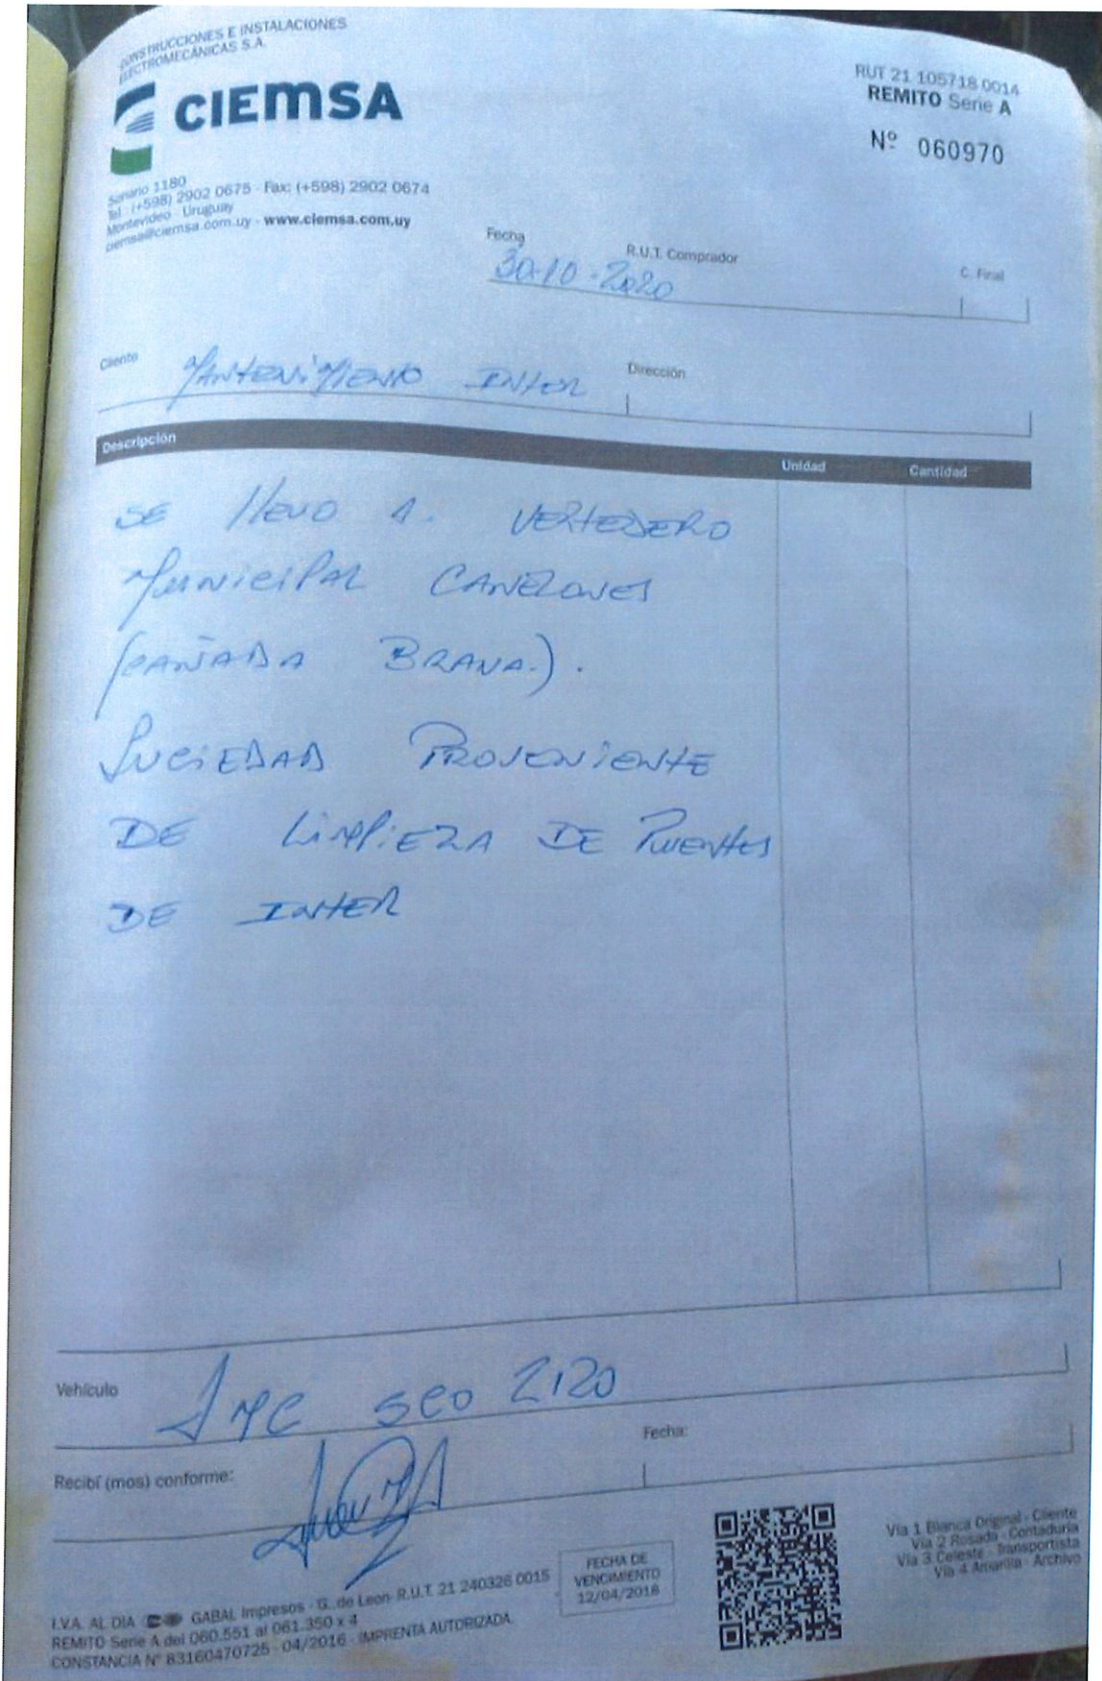 CONSTRUCCIONES E INSTALACIONES
ELECTROMECÁNICAS S.A.
CIEMSA
RUT 21 105718 0014
REMITO Serie A
Nº 060970
Soriano 1180
Tel.: (+598) 2902 0675 - Fax: (+598) 2902 0674
Montevideo - Uruguay
ciemsa@ciemsa.com.uy - www.ciemsa.com.uy
Fecha
R.U.T. Comprador
C. Final
30-10-2020
Cliente
MANTENIMIENTO INTER
Dirección
Descripción
Unidad
Cantidad
SE llevo A. VERTEDERO
MUNICIPAL CANELONES
(CAÑADA BRANA.).
SUCIEDAD PROVENIENTE
DE LIMPIEZA DE PUENTES
DE INTER
Vehículo
JMC SCO 2120
Recibí (mos) conforme:
Fecha:
I.V.A. AL DIA GABAL Impresos - G. de Leon- R.U.T. 21 240326 0015
REMITO Serie A del 060.551 al 061.350 x 4
CONSTANCIA Nº 83160470725 - 04/2016 - IMPRENTA AUTORIZADA.
FECHA DE
VENCIMIENTO
12/04/2018
Vía 1 Blanca Original - Cliente
Vía 2 Rosada - Contaduría
Vía 3 Celeste - Transportista
Vía 4 Amarilla - Archivo